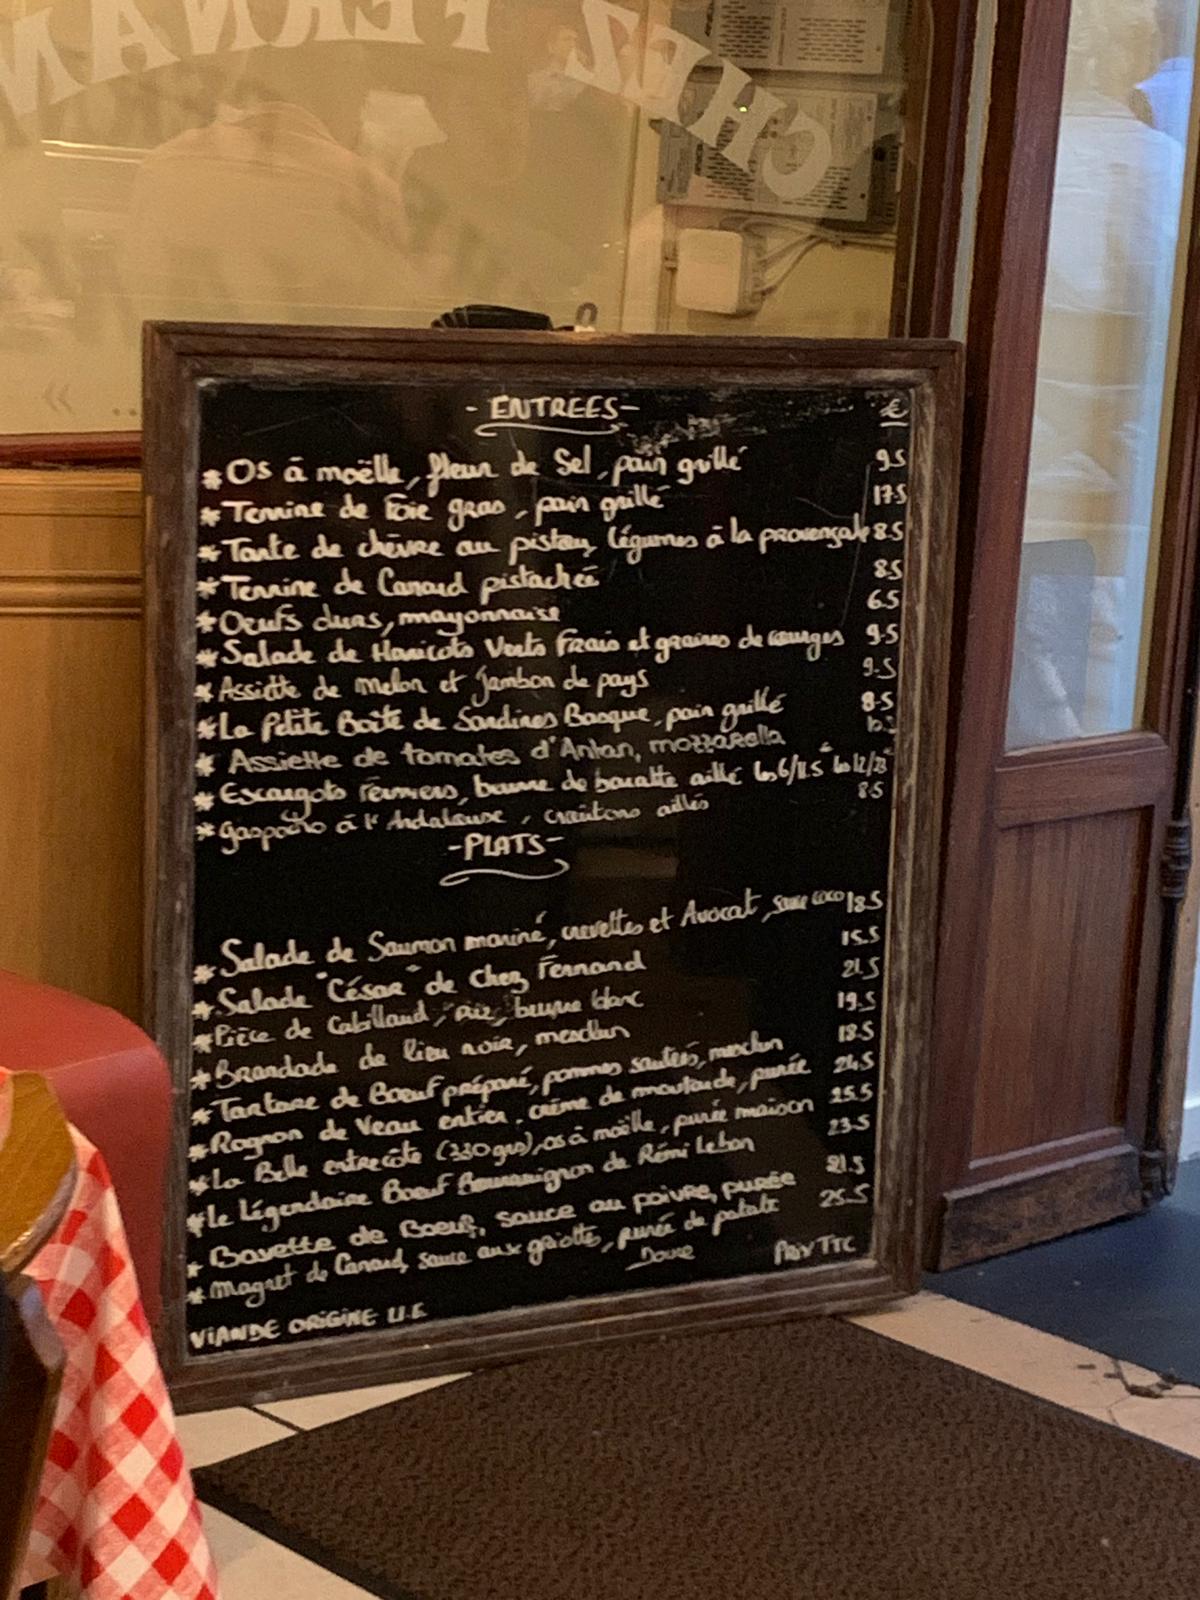 CHEZ FERNAN
- ENTREES - €
* Os à moëlle, fleur de Sel, pain grillé 9.5
* Terrine de Foie gras, pain grillé 17.5
* Tarte de chèvre au pistou, légumes à la provençale 8.5
* Terrine de Canard pistachée 8.5
* Oeufs durs, mayonnaise 6.5
* Salade de Haricots Verts Frais et graines de courges 9.5
* Assiette de Melon et Jambon de pays 9.5
* La Petite Boîte de Sardines Basque, pain grillé 8.5
* Assiette de tomates d'Antan, mozzarella
* Escargots fermiers, beurre de baratte aillé les 6/11.5 les 12/23
* gaspacho à l'Andalouse, croûtons aillés 8.5
- PLATS -
* Salade de Saumon mariné, crevettes et Avocat, sauce coco 18.5
* Salade "César" de Chez Fernand 15.5
* Pièce de Cabillaud, riz, beurre blanc 21.5
* Brandade de lieu noir, mesclun 19.5
* Tartare de Boeuf préparé, pommes sautées, mesclun 18.5
* Rognon de Veau entier, crème de moutarde, purée 24.5
* La Belle entrecôte (330grs), os à moëlle, purée maison 25.5
* Le Légendaire Boeuf Bourguignon de Rémi Lebon 23.5
* Bavette de Boeuf, sauce au poivre, purée 21.5
* Magret de Canard, sauce aux griottes, purée de patate Douce 25.5
VIANDE ORIGINE U.E Prix TTC